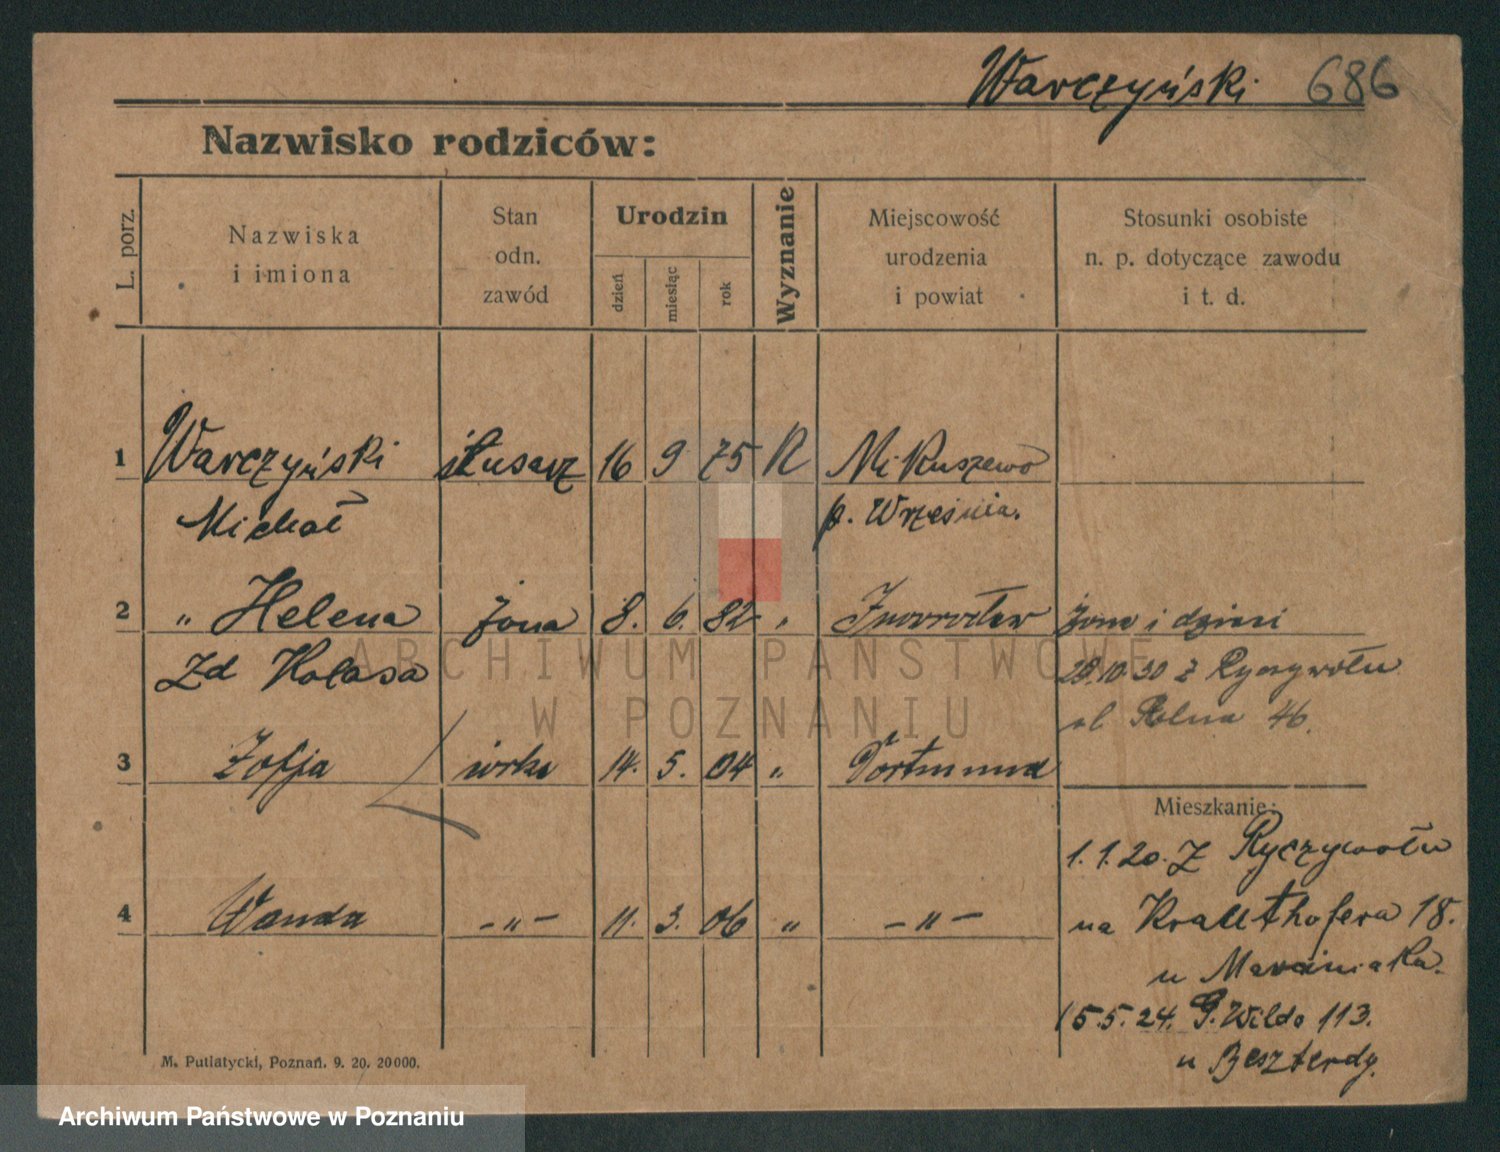 Warczyński 686
Nazwisko rodziców:
L. porz.
Nazwiska
i imiona
Stan
odn.
zawód
Urodzin
dzień
miesiąc
rok
Wyznanie
Miejscowość
urodzenia
i powiat
Stosunki osobiste
n. p. dotyczące zawodu
i t. d.
1 Warczyński ślusarz 16 9 75 R Mikuszewo
Michał p. Września.
2 " Helena żona 8. 6. 82 " Inowrocław żona i dzieci
Zd Kolasa 28.10.30 z Ryczywołu
ul Polna 46.
3 Zofja córka 14. 5. 04 " Dortmund
Mieszkanie:
1.1.20. Z Ryczywołu
4 Wanda -"- 11. 3. 06 " -"-
na Krauthofera 18.
u Marciniaka.
15.5.24. G. Wilda 113.
u Beszterdy.
M. Putiatycki, Poznań. 9. 20. 20000.
ARCHIWUM PAŃSTWOWE
W POZNANIU
Archiwum Państwowe w Poznaniu